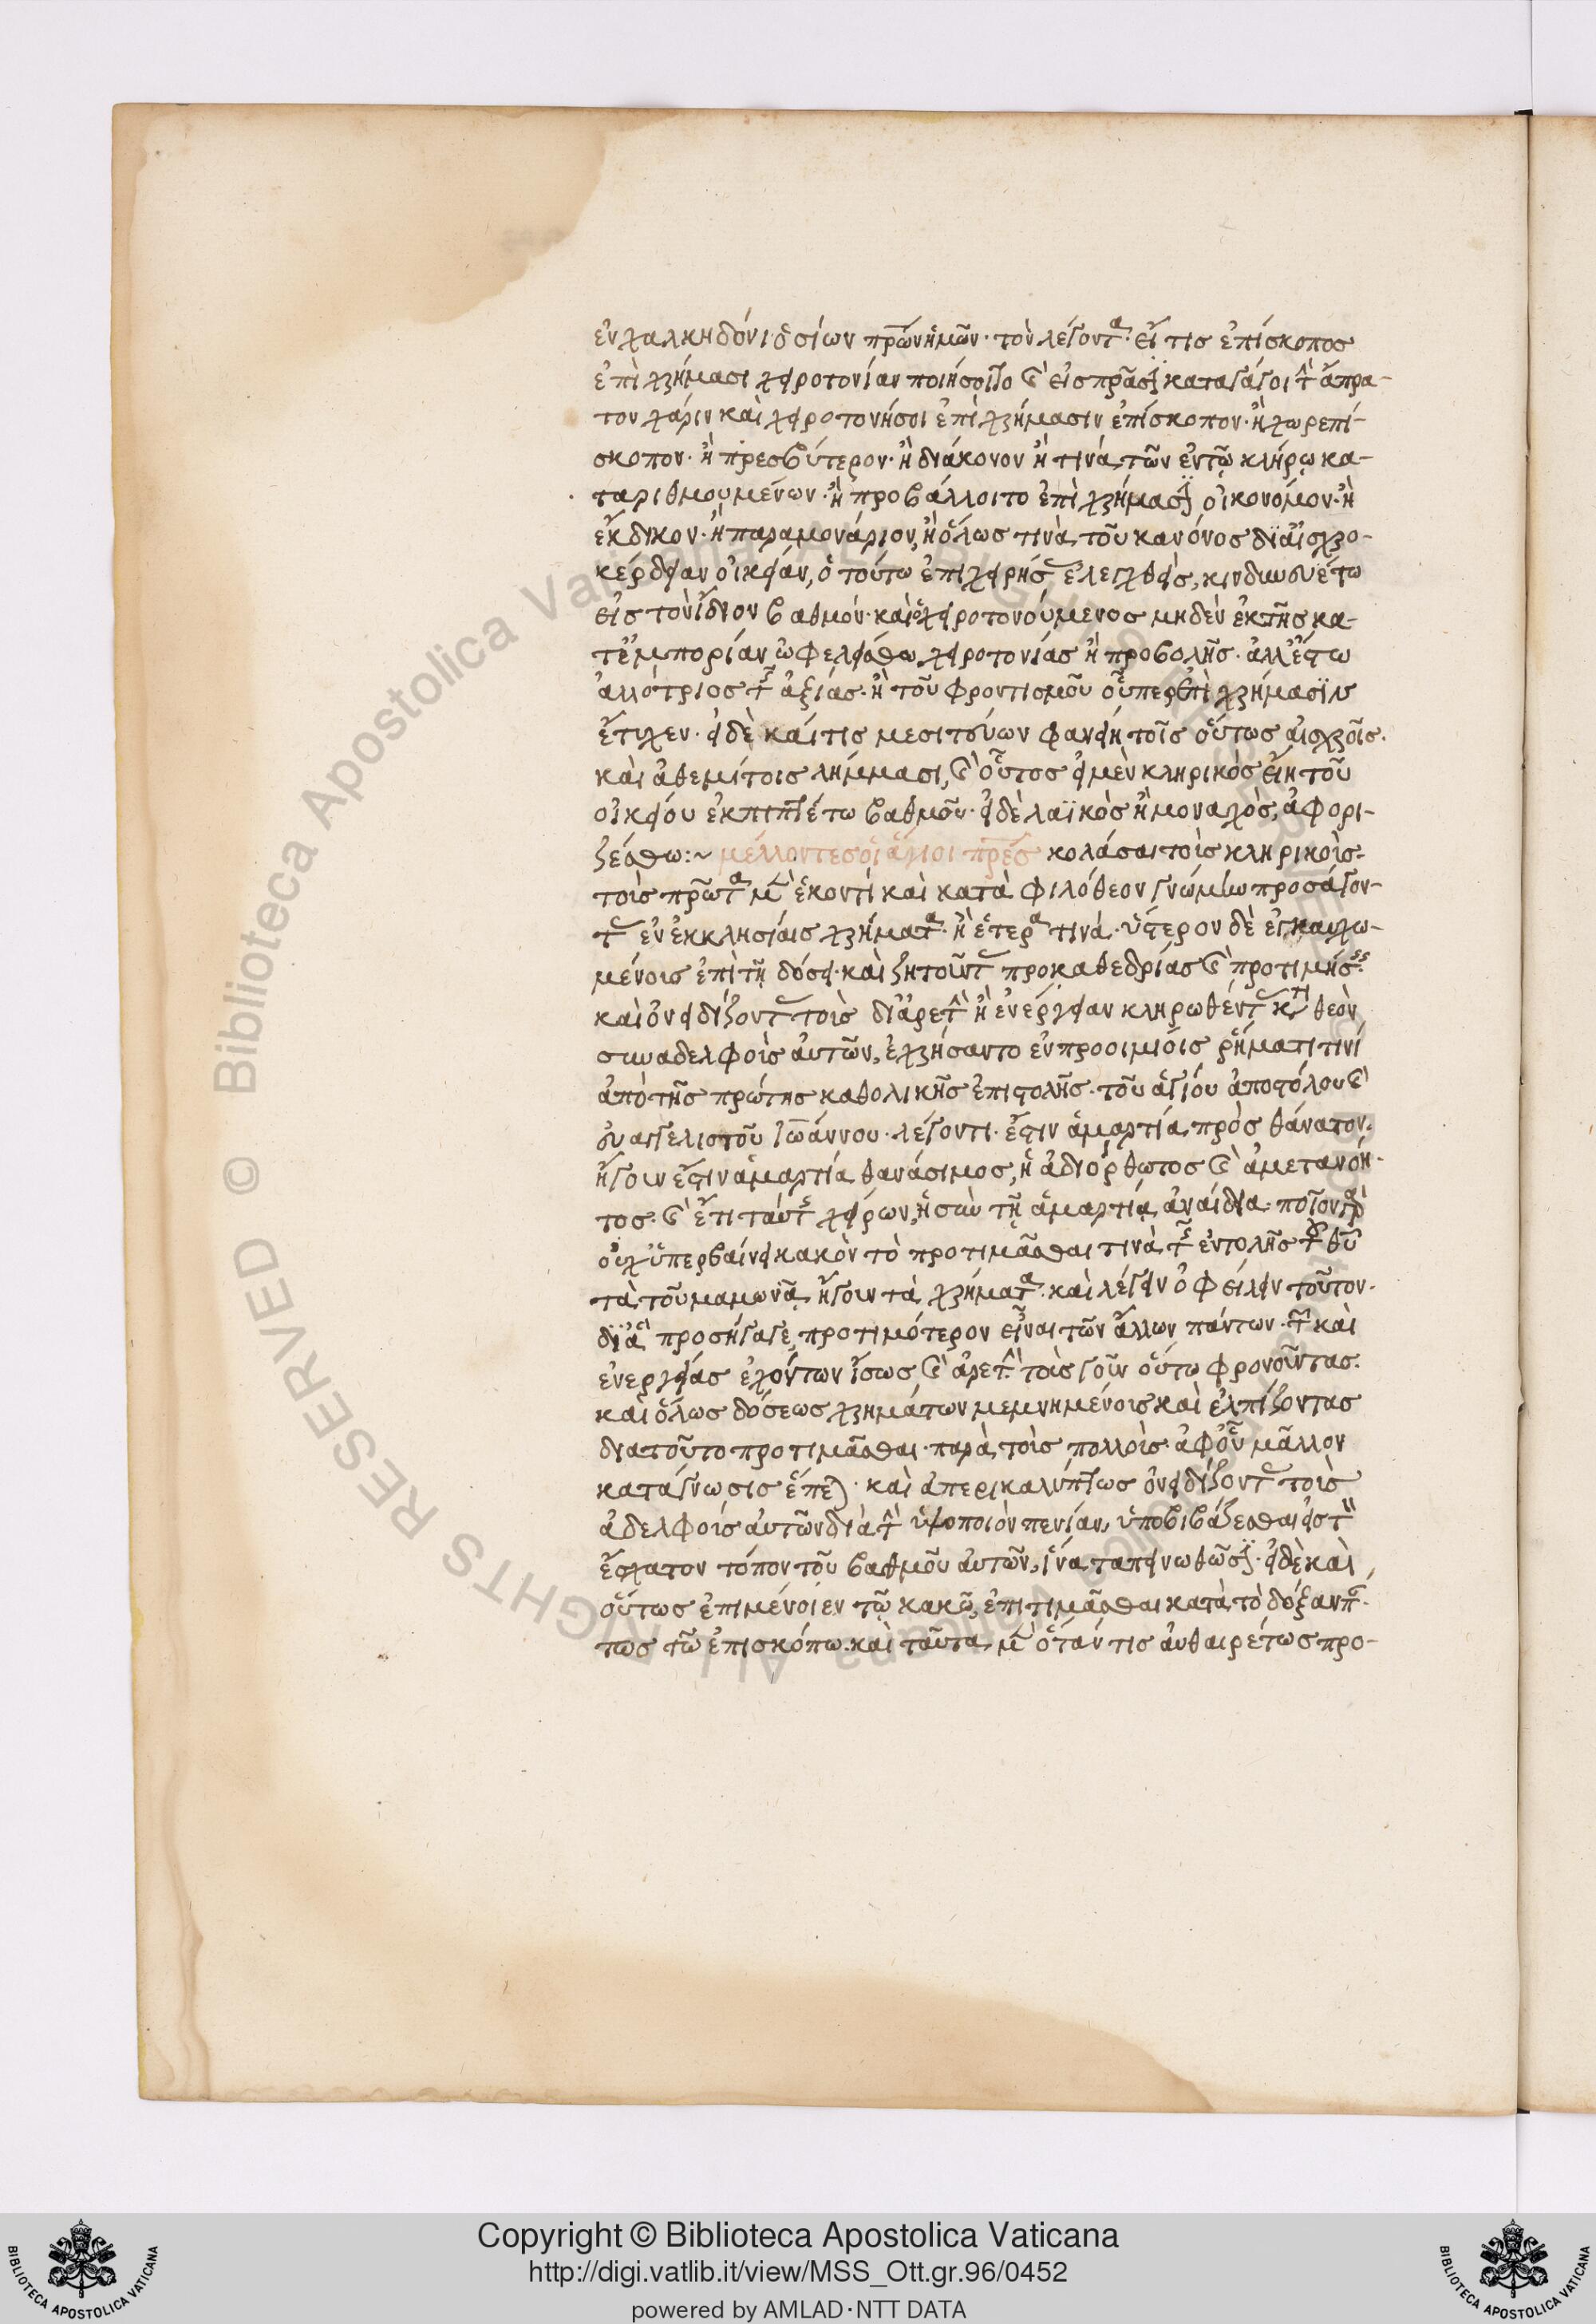 ἐν χαλκηδόνι ὁσίων πρ̅ων ἡμῶν· τὸν λέγοντα· εἴ τις ἐπίσκοπος
ἐπὶ χρήμασι χειροτονίαν ποιήσοιτο καὶ εἰς πρᾶσιν καταγάγοι τὴν ἄπρα-
τον χάριν καὶ χειροτονήσοι ἐπὶ χρήμασιν ἐπίσκοπον· ἢ χωρεπί-
σκοπον· ἢ πρεσβύτερον· ἢ διάκονον ἢ τινὰ τῶν ἐν τῷ κλήρῳ κα-
ταριθμουμένων· ἢ προβάλλοιτο ἐπὶ χρήμασιν οἰκονόμον· ἢ
ἔκδικον· ἢ παραμονάριον, ἢ ὅλως τινὰ τοῦ κανόνος δι' αἰσχρο-
κέρδειαν οἰκείαν, ὁ τούτω ἐπιχειρήσας ἐλεγχθεὶς, κινδυνευέτω
εἰς τὸν ἴδιον βαθμόν· καὶ ὁ χειροτονούμενος μηδὲν ἐκ τῆς κα-
τ' ἐμπορίαν ὠφελείσθω χειροτονίας ἢ προβολῆς· ἀλλ' ἔστω
ἀλλότριος τῆς ἀξίας· ἢ τοῦ φροντισμοῦ οὗπερ ἐπὶ χρήμασιν
ἔτυχεν· εἰ δὲ καί τις μεσιτεύων φανείη τοῖς οὕτως αἰσχροῖς·
καὶ ἀθεμίτοις λήμμασι, καὶ οὗτος εἰ μὲν κληρικὸς εἴη τοῦ
οἰκείου ἐκπιπτέτω βαθμοῦ· εἰ δὲ λαϊκὸς ἢ μοναχὸς, ἀφορι-
ζέσθω:~ μέλλοντες οἱ ἅγιοι πρ̅ες κολάσαι τοὺς κληρικοὺς
τοὺς πρῶτα μὲν ἑκοντὶ καὶ κατὰ φιλόθεον γνώμην προσάγον-
τας ἐν ἐκκλησίαις χρήματα· ἢ ἕτερα τινά· ὕστερον δὲ ἐγκαυχω-
μένους ἐπὶ τῇ δόσει· καὶ ζητοῦντας προκαθεδρίας καὶ προτιμήσεις·
καὶ ὀνειδίζοντας τοὺς δι' ἀρετὴν ἢ ἐνέργειαν κληρωθέντας κατὰ θεὸν
συναδελφοὺς αὐτῶν, ἐχρήσαντο ἐν προοιμίοις ῥήματι τινὶ
ἀπὸ τῆς πρώτης καθολικῆς ἐπιστολῆς· τοῦ ἁγίου ἀποστόλου καὶ
εὐαγγελιστοῦ ἰω̅άννου· λέγοντι· ἔστιν ἁμαρτία πρὸς θάνατον·
ἤγουν ἔστιν ἁμαρτία θανάσιμος, ἡ ἀδιόρθωτος καὶ ἀμετανόη-
τος· καὶ ἔτι ταύτης χείρων, ἡ σὺν τῇ ἁμαρτίᾳ ἀναίδεια· ποῖον γὰρ
οὐχ' ὑπερβαίνει κακὸν τὸ προτιμᾶσθαι τινὰ τῆς ἐντολῆς τοῦ θ̅υ
τὰ τοῦ μαμωνᾶ, ἤγουν τὰ χρήματα· καὶ λέγειν ὀφείλειν τοῦτον·
δι' ἃ προσήγαγε, προτιμότερον εἶναι τῶν ἄλλων πάντων· τῶν καὶ
ἐνεργείας ἐχόντων ἴσως καὶ ἀρετήν· τοὺς γοῦν οὕτω φρονοῦντας·
καὶ ὅλως δόσεως χρημάτων μεμνημένους καὶ ἐλπίζοντας
διὰ τοῦτο προτιμᾶσθαι· παρὰ τοῖς πολλοῖς· ἀφ' οὗ μᾶλλον
κατάγνωσις ἕπεται· καὶ ἀπερικαλύπτως ὀνειδίζοντας τοὺς
ἀδελφοὺς αὐτῶν διὰ τὴν ὑψοποιὸν πενίαν, ὑποβιβάζεσθαι εἰς τὸν
ἔσχατον τόπον τοῦ βαθμοῦ αὐτῶν, ἵνα ταπεινωθῶσιν· εἰ δὲ καὶ
οὕτως ἐπιμένοιεν τῷ κακῷ, ἐπιτιμᾶσθαι κατὰ τὸ δόξαν πάν-
τως τῶ ἐπισκόπω· καὶ ταῦτα μὲν ὅταν τις αὐθαιρέτως προ-
Copyright © Biblioteca Apostolica Vaticana
http://digi.vatlib.it/view/MSS_Ott.gr.96/0452
powered by AMLAD·NTT DATA